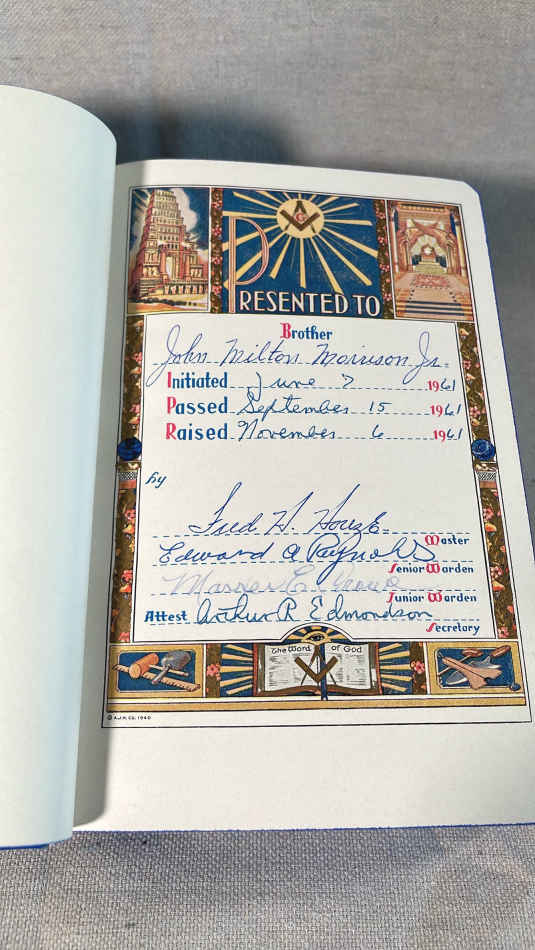 G
PRESENTED TO
Brother
John Milton Morrison Jr.
Initiated June 7 1961
Passed September 15 1961
Raised November 6 1961
by
Fred H. Houze
Master
Edward A Reynolds
Senior Warden
E.
Junior Warden
Attest Arthur R Edmondson
Secretary
The Word of God
© A.J.H. CO. 1940